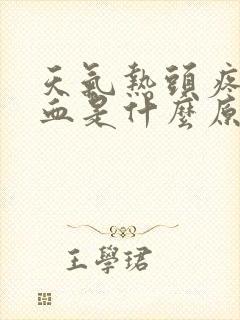 天氣熱頭疼
血是什麼原
王學珺